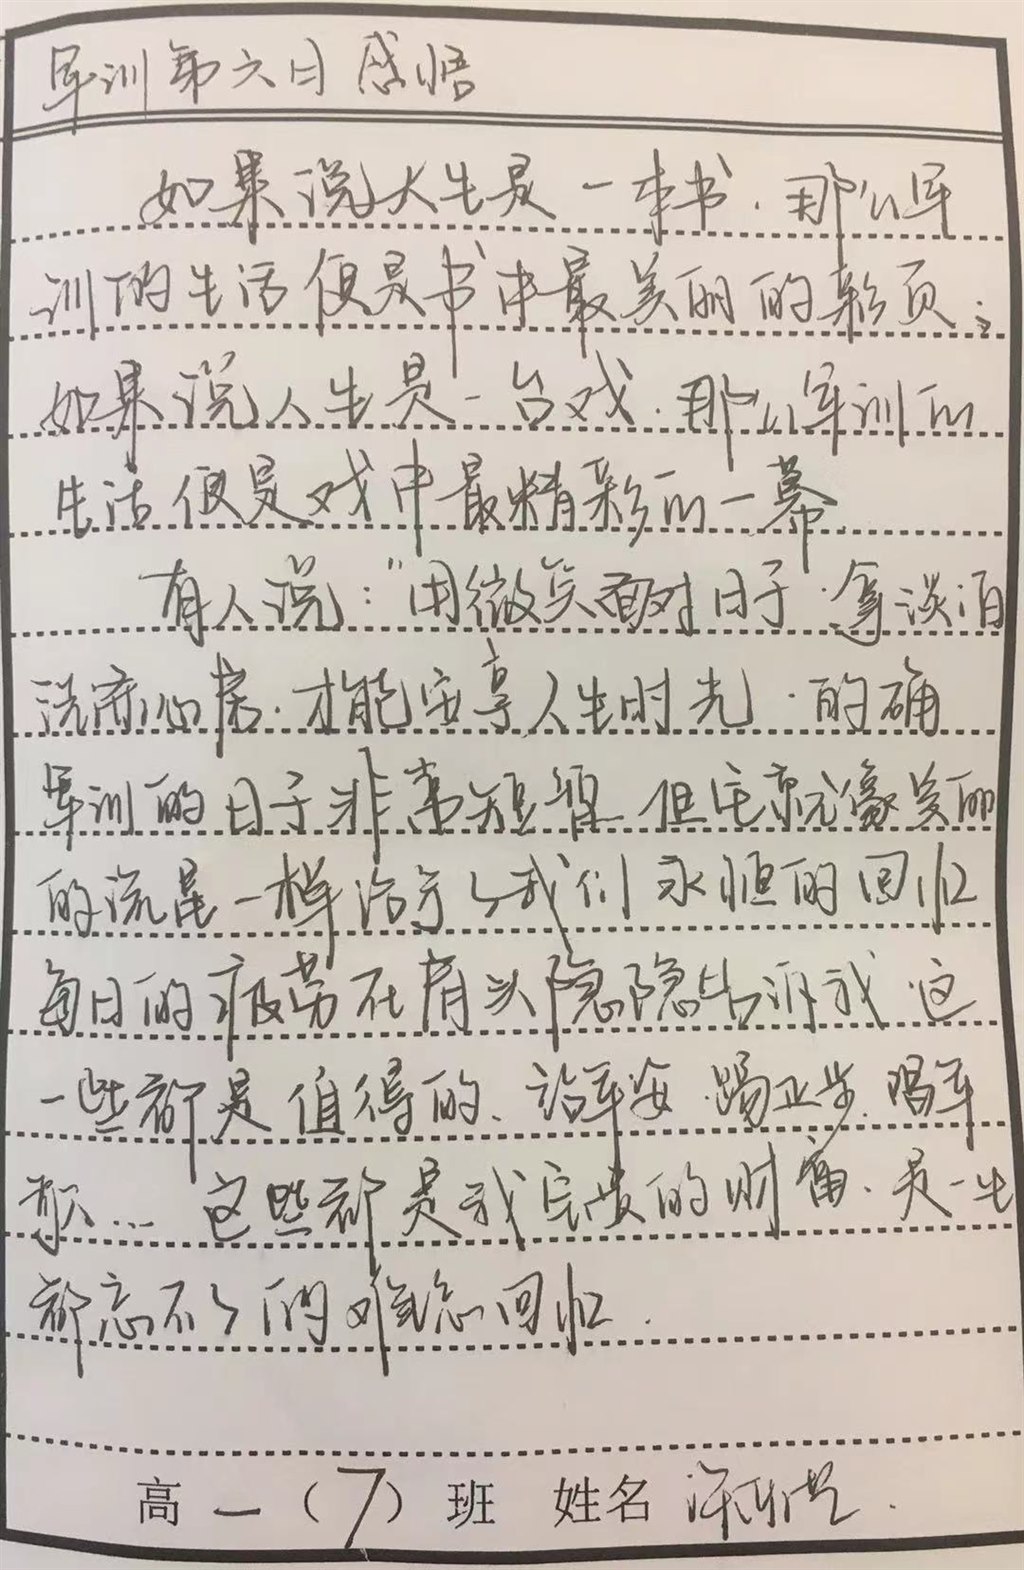 军训第六日感悟
如果说人生是一本书,那么军
训的生活便是书中最美丽的彩页;
如果说人生是一台戏,那么军训的
生活便是戏中最精彩的一幕
有人说:“用微笑面对日子,拿淡泊
洗滌心房,才能安享人生时光,的确
军训的日子非常短暂 但它就像美丽
的流星一样给予了我们永恒的回忆
每日的疲劳在肩头隐隐告诉我,这
一些都是值得的、站军姿,踢正步,唱军
歌... 这些都是我宝贵的财富,是一生
都忘不了的难忘回忆.
高一(7)班 姓名